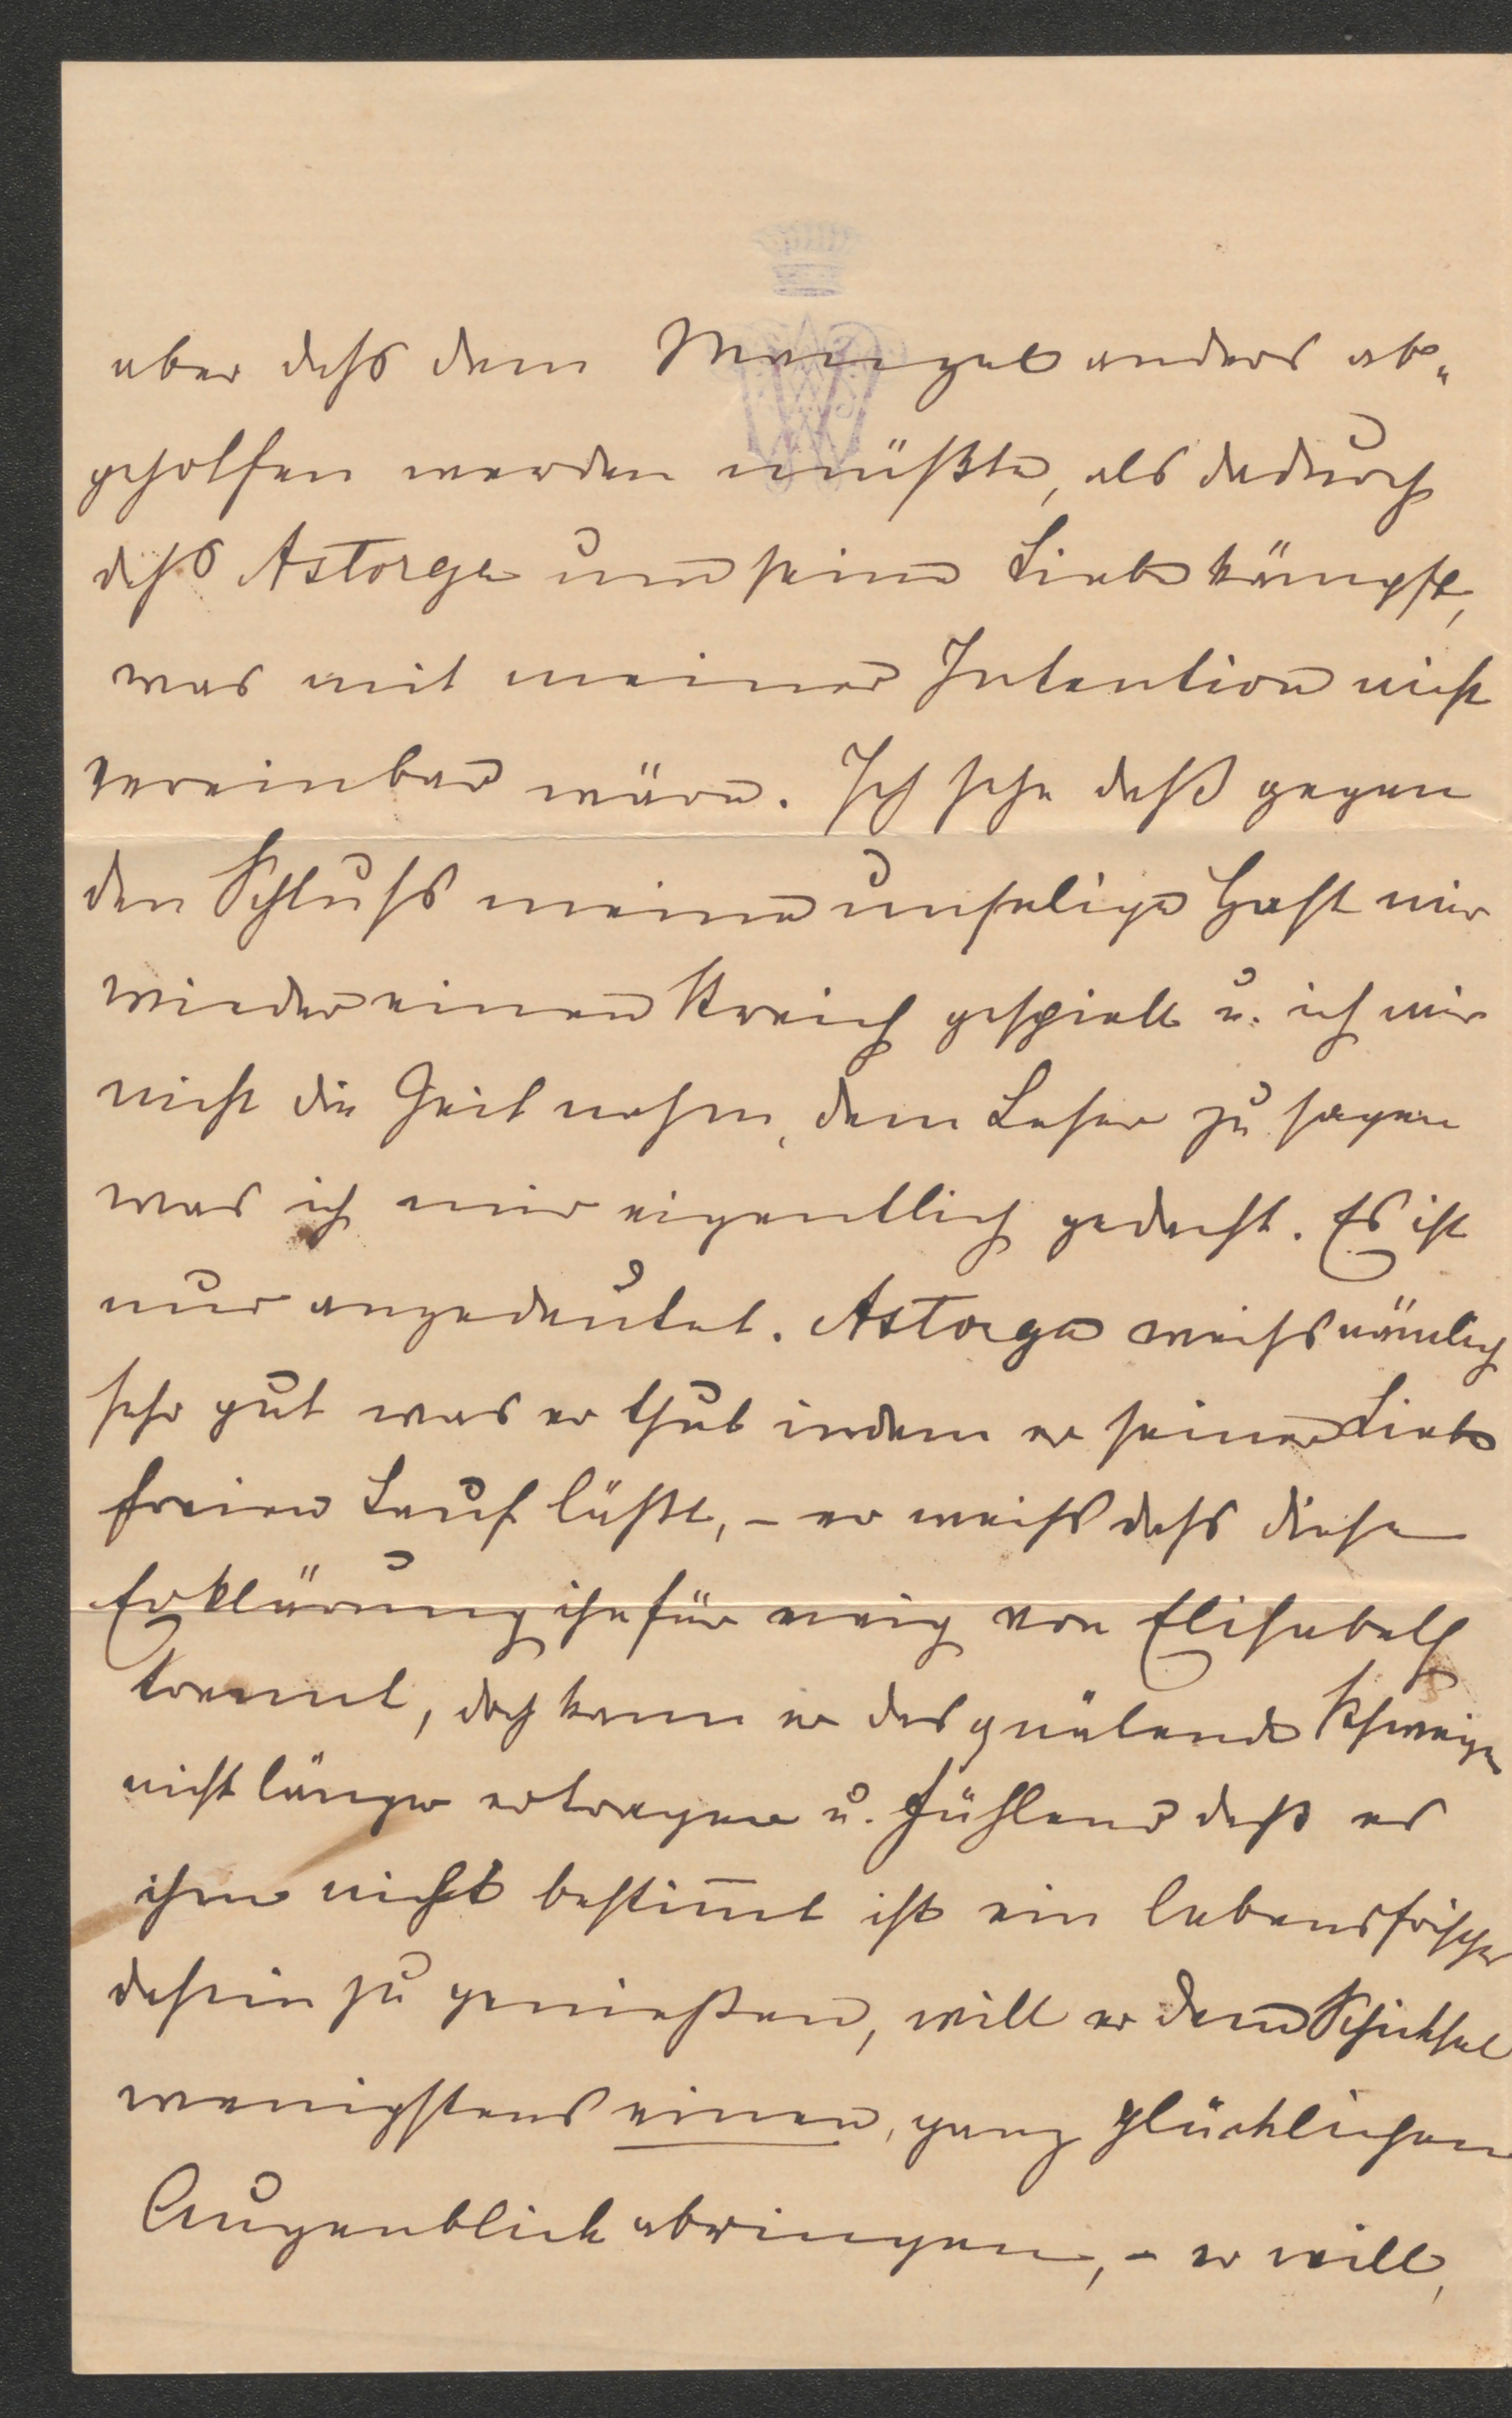 aber daß dem Mangel anders ab„
geholfen werden müßte, als dadurch
daß Astorga um seine Liebe kämpft,
was mit meiner Intention nicht
vereinbar wäre. Ich sehe daß gegen
den Schluß meine unselige Hast mir
wieder einen Streich gespielt u. ich mir
nicht die Zeit nahm, dem Leser zu sagen
was ich mir eigentlich gedacht. Es ist
nur angedeutet. Astorga weiß nämlich
sehr gut was er thut indem er seiner Liebe
freien Lauf läßt, – er weiß daß diese
Erklärung ihn für ewig von Elisabeth
trennt, doch kann er das quälende Schweigen
nicht länger ertragen u. fühlend daß es
ihm nicht bestim̄t ist ein lebensfrisches
dasein zu genießen, will er dem Schicksal
wenigstens einen, ganz glücklichen
Augenblick abringen, – er will,